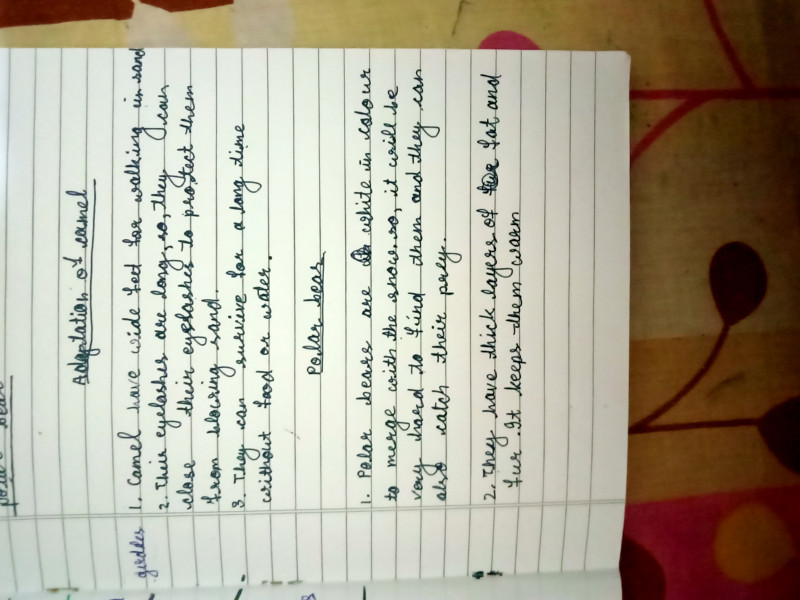 polar bear
Adaptation of camel
1. Camel have wide feet for walking in sand
girdles
2. Their eyelashes are long, so, they can
close their eyelashes to protect them
from blowing sand.
3. They can survive for a long time
without food or water.
Polar bear
1. Polar bears are white in colour
to merge with the snow. so, it will be
very hard to find them and they can
also catch their prey.
2. They have thick layers of fat and
fur. It keeps them warm